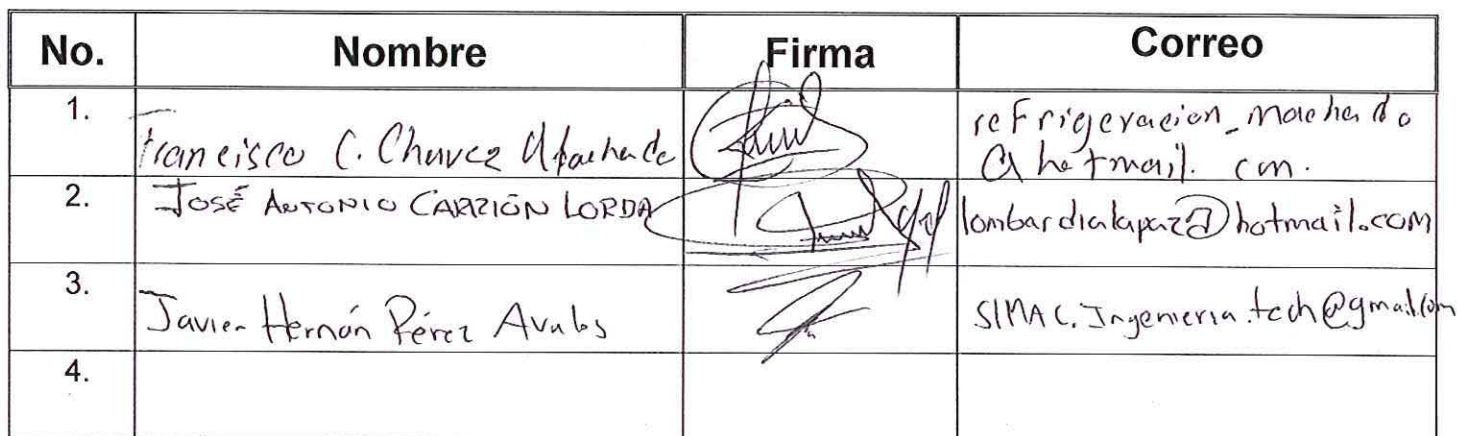 No. Nombre Firma Correo
1. Francisco C. Chavez Machado refrigeracion_machado
@hotmail. com.
2. JOSÉ ANTONIO CARRIÓN LORDA lombardialapaz@hotmail.com
3. Javier Hernán Pérez Avalos SIMAC.Ingenieria.tech@gmail.com
4.